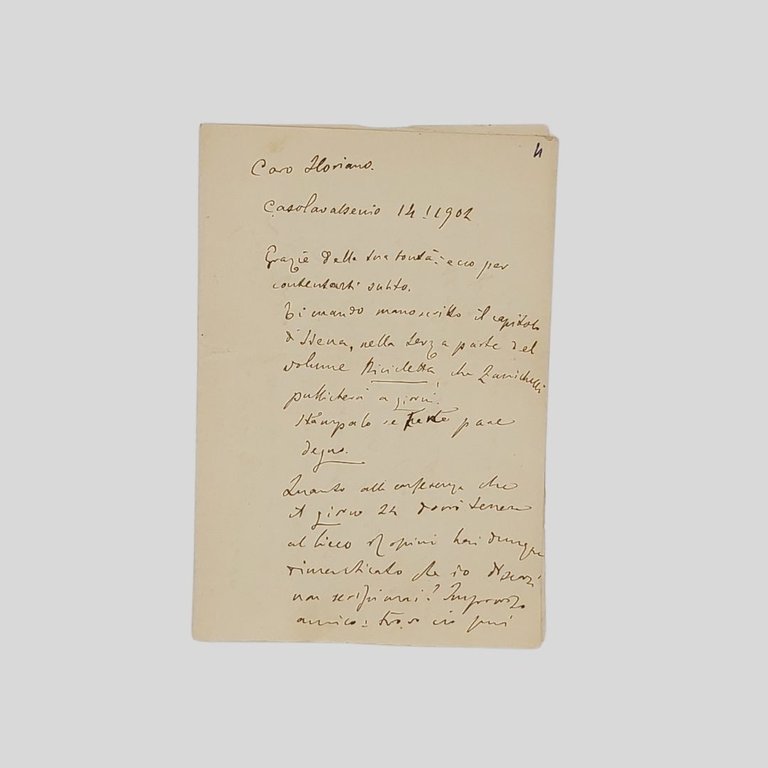 4
Caro Floriano.
Casolavalsenio 14.1.1902
Grazie della tua bontà: ecco per
contentarti subito.
Ti mando manoscritto il capitolo
di Siena, nella terza parte del
volume Bicicletta, che Zanichelli
pubblicherà a giorni.
Stampalo se ti pare
degno.
Quanto alla conferenza che
il giorno 24 dovrò tenere
al liceo Rossini hai dunque
dimenticato che io discorsi
non scrissi mai? Improvviso
amico: forse ciò può